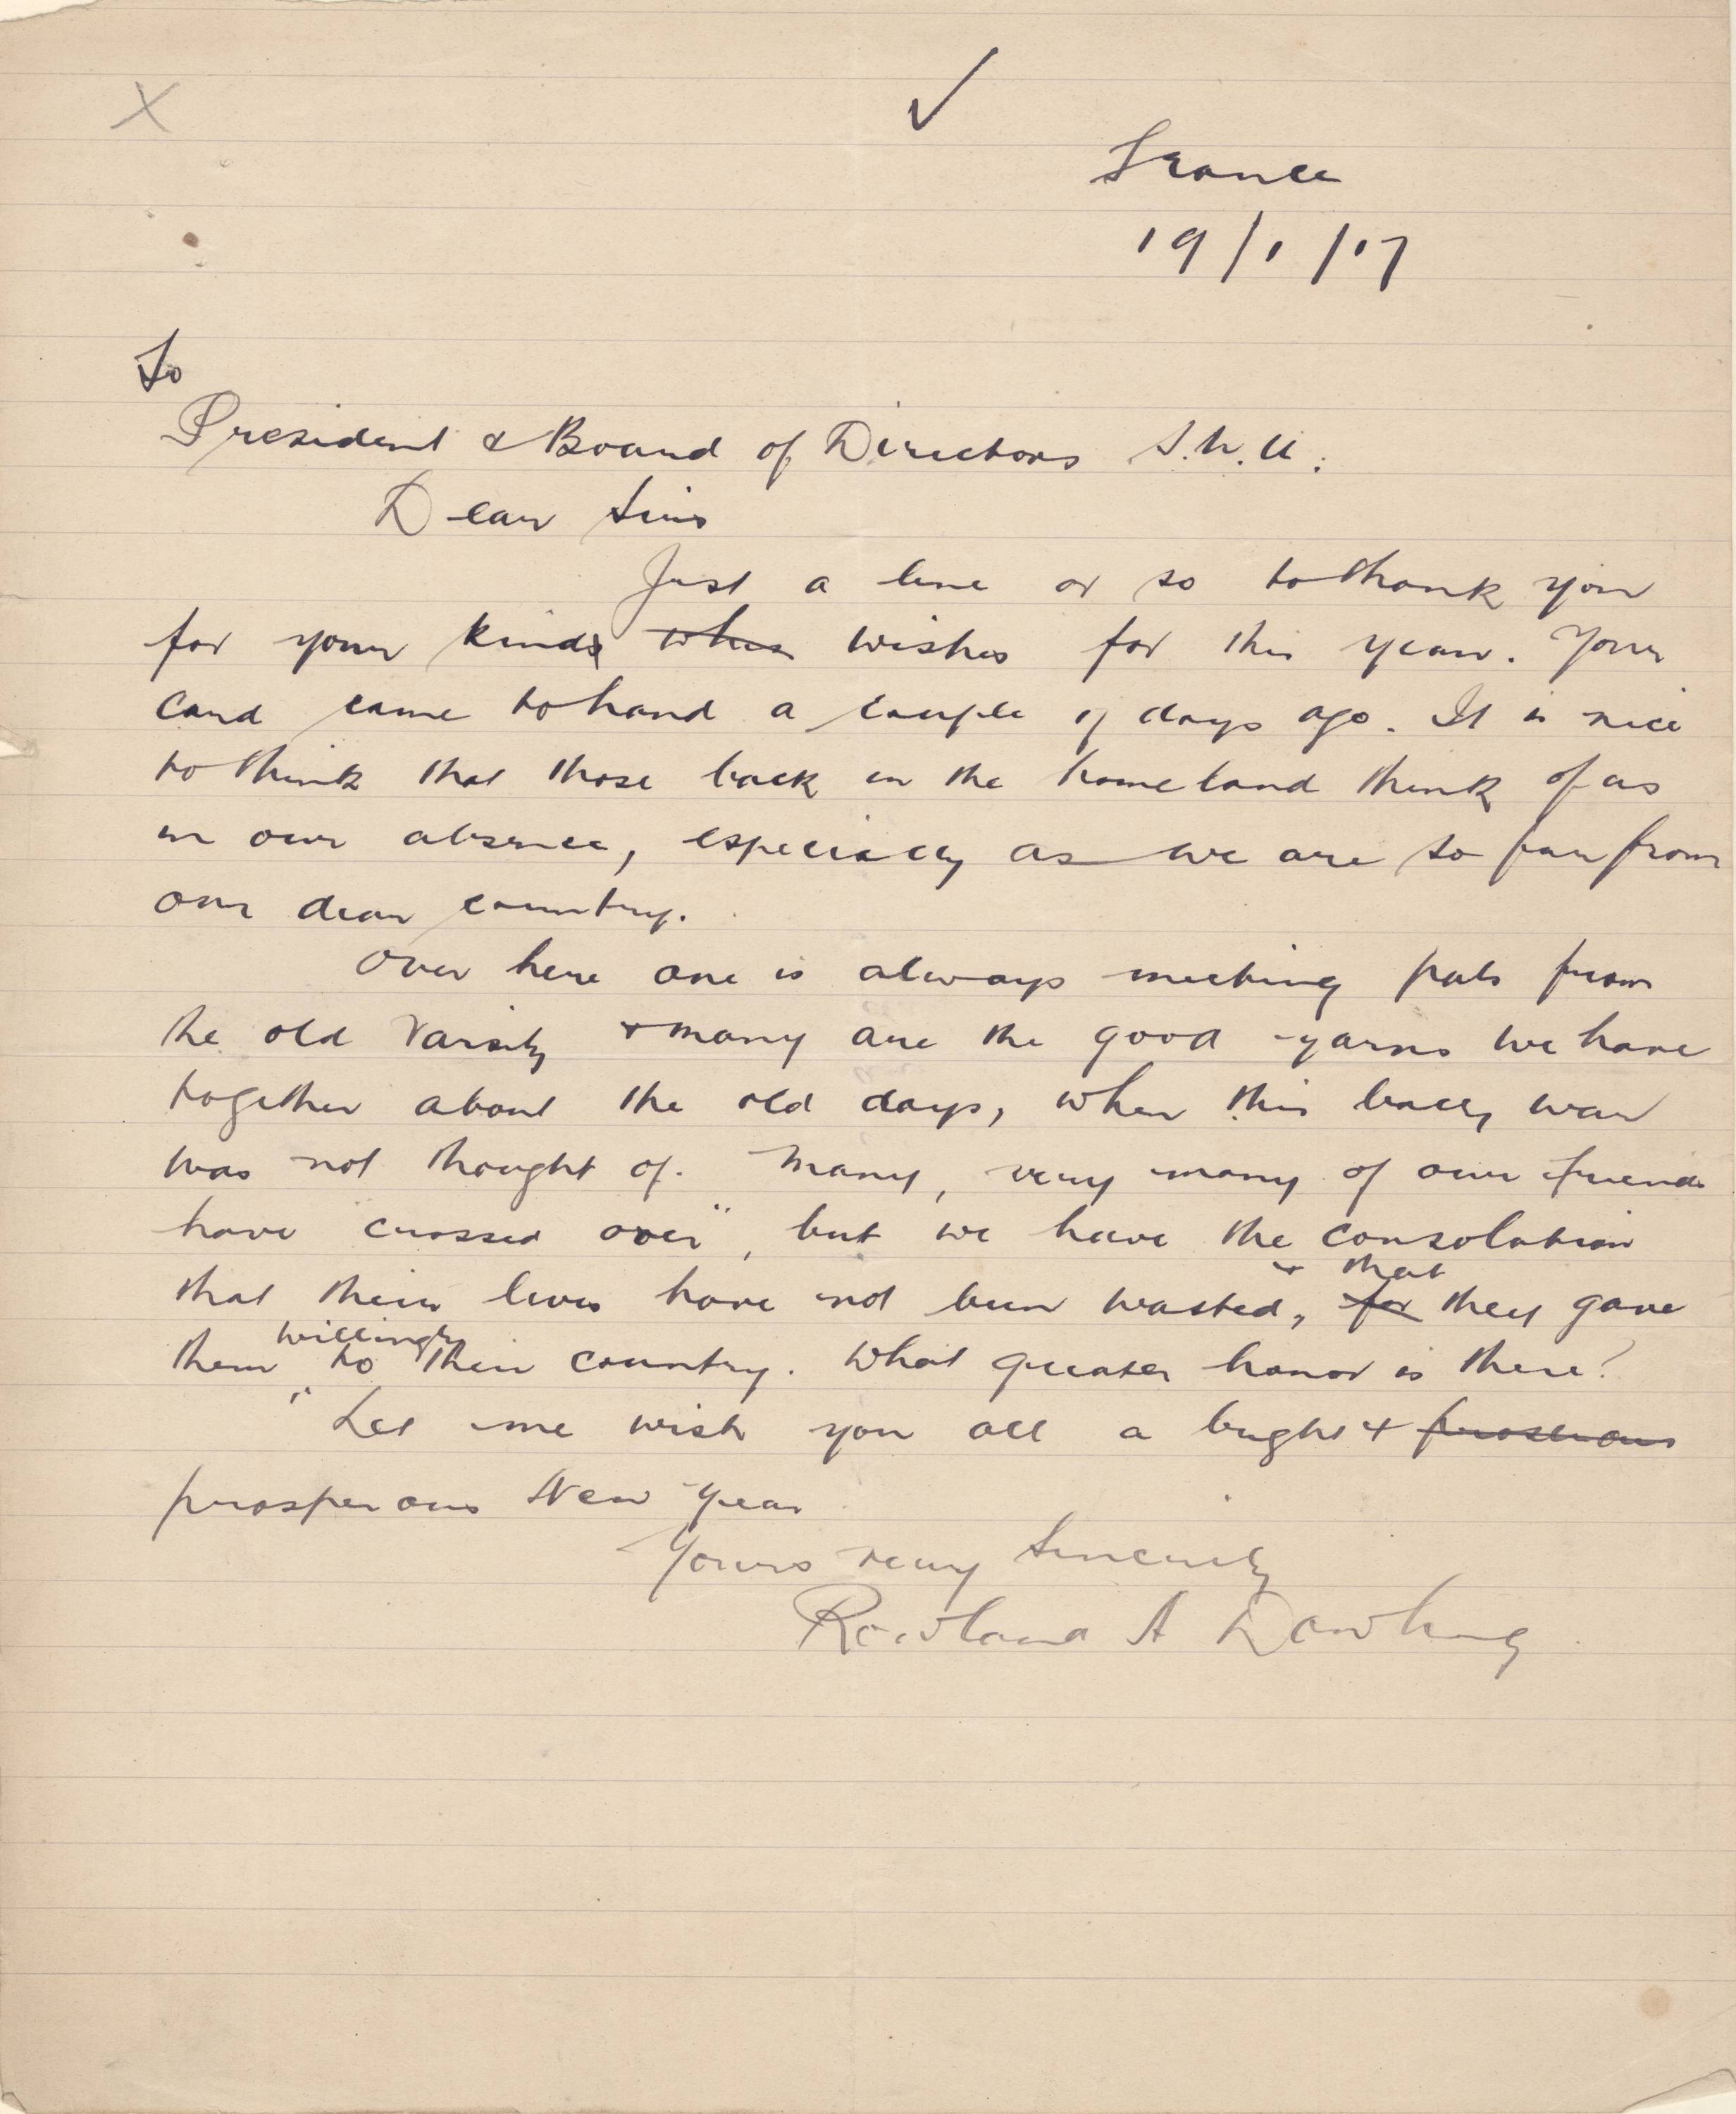 France
19/1/17
To
President & Board of Directors S.U.U.
Dear Sirs
Just a line or so to thank you
for your kind wishes for this year. Your
card came to hand a couple of days ago. It is nice
to think that those back in the homeland think of us
in our absence, especially as we are so far from
our dear country.
Over here one is always meeting pals from
the old Varsity & many are the good yarns we have
together about the old days, when this bally war
was not thought of. Many, very many of our friends
have crossed over", but we have the consolation
& that
that their lives have not been wasted, for they gave
willingly
them to their country. What greater honor is there?
Let me wish you all a bright &
prosperous New Year
Yours very sincerely
Rowland A Dowling